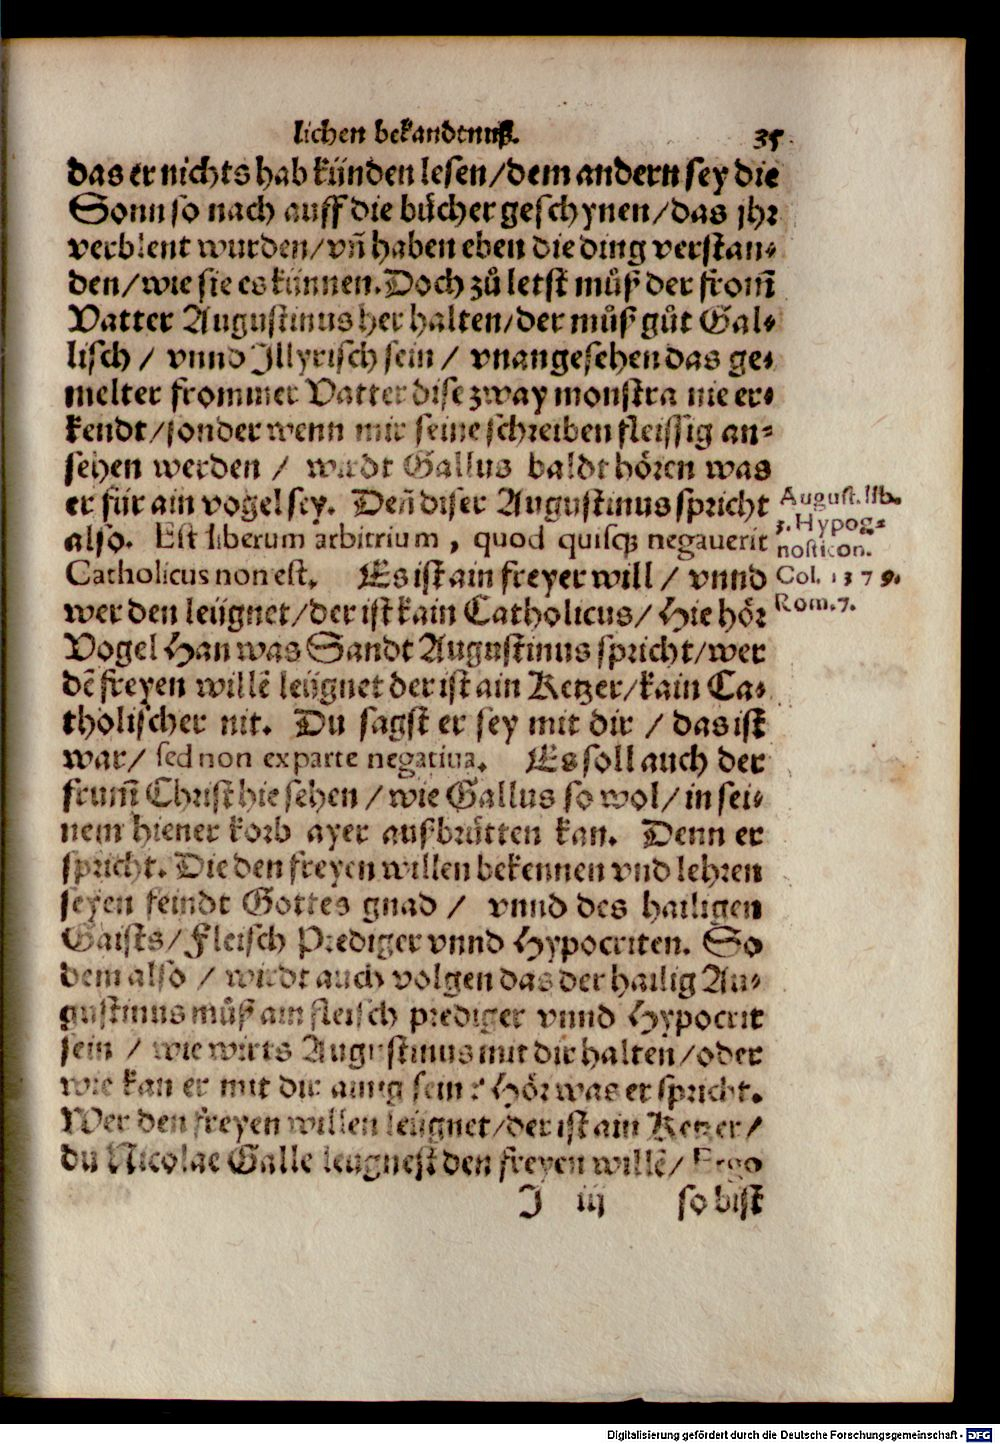 lichen bekandtnuß. 35
das er nichts hab künden lesen/dem andern sey die
Sonn so nach auff die bücher geschynen/das jhr
verblent wurden/vñ haben eben die ding verstan-
den/wie sie es künnen. Doch zů letst můß der from̃
Vatter Augustinus her halten/der můß gůt Gal-
lisch / vnnd Illyrisch sein / vnangesehen das ge-
melter frommer Vatter dise zway monstra nie er-
kendt/sonder wenn mir seine schreiben fleissig an-
sehen werden / wirdt Gallus baldt hören was
er für ain vogel sey. Deñ diser Augustinus spricht
also. Est liberum arbitrium, quod quisqꝫ negauerit
Catholicus non est. Es ist ain freyer will / vnnd
wer den leügnet/der ist kain Catholicus/ Hie hör
Vogel Han was Sandt Augustinus spricht/wer
dẽ freyen willẽ leügnet der ist ain Ketzer/kain Ca-
tholischer nit. Du sagst er sey mit dir / das ist
war/ sed non ex parte negatiua. Es soll auch der
frum̃ Christ hie sehen / wie Gallus so wol/in sei-
nem hiener korb ayer außbrütten kan. Denn er
spricht. Die den freyen willen bekennen vnd lehren
seyen feindt Gottes gnad / vnnd des hailigen
Gaists/Fleisch Prediger vnnd Hypocriten. So
dem also / wirdt auch volgen das der hailig Au-
gustinus můß ain fleisch prediger vnnd Hypocrit
sein / wie wirts Augustinus mit dir halten/oder
wie kan er mit dir ainig sein? Hör was er spricht.
Wer den freyen willen leügnet/der ist ain Ketzer/
du Nicolae Galle leugnest den freyen willẽ/ Ergo
J iij so bist
August. lib.
3. Hypog-
nosticon.
Col. 1379.
Rom. 7.
Digitalisierung gefördert durch die Deutsche Forschungsgemeinschaft - DFG